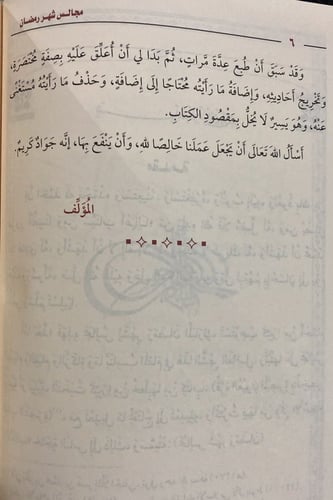 مجالس شهر رمضان
٦
وَقَد سَبَقَ أَنْ طُبعَ عِدَّةَ مَرَّاتٍ، ثُمَّ بَدَا لي أَنْ أُعَلِّقَ عَلَيْهِ بِصِفَةٍ مُخْتَصَرَةٍ،
وَتَخْرِيجِ أَحَادِيثِهِ، وَإِضَافَةِ مَا رَأَيْتُهُ مُحْتَاجًا إِلَى إِضَافَةٍ، وَحَذْفِ مَا رَأَيْتُهُ مُسْتَغْنًى
عَنْهُ، وَهُوَ يَسِيرٌ لَا يُخِلُّ بِمَقْصُودِ الكِتَابِ.
أَسْأَلُ اللهَ تَعَالَى أَنْ يَجْعَلَ عَمَلَنَا خَالِصًا للهِ، وَأَنْ يَنْفَعَ بِهَا، إِنَّه جَوَادٌ كَرِيمٌ.
المُؤَلِّف